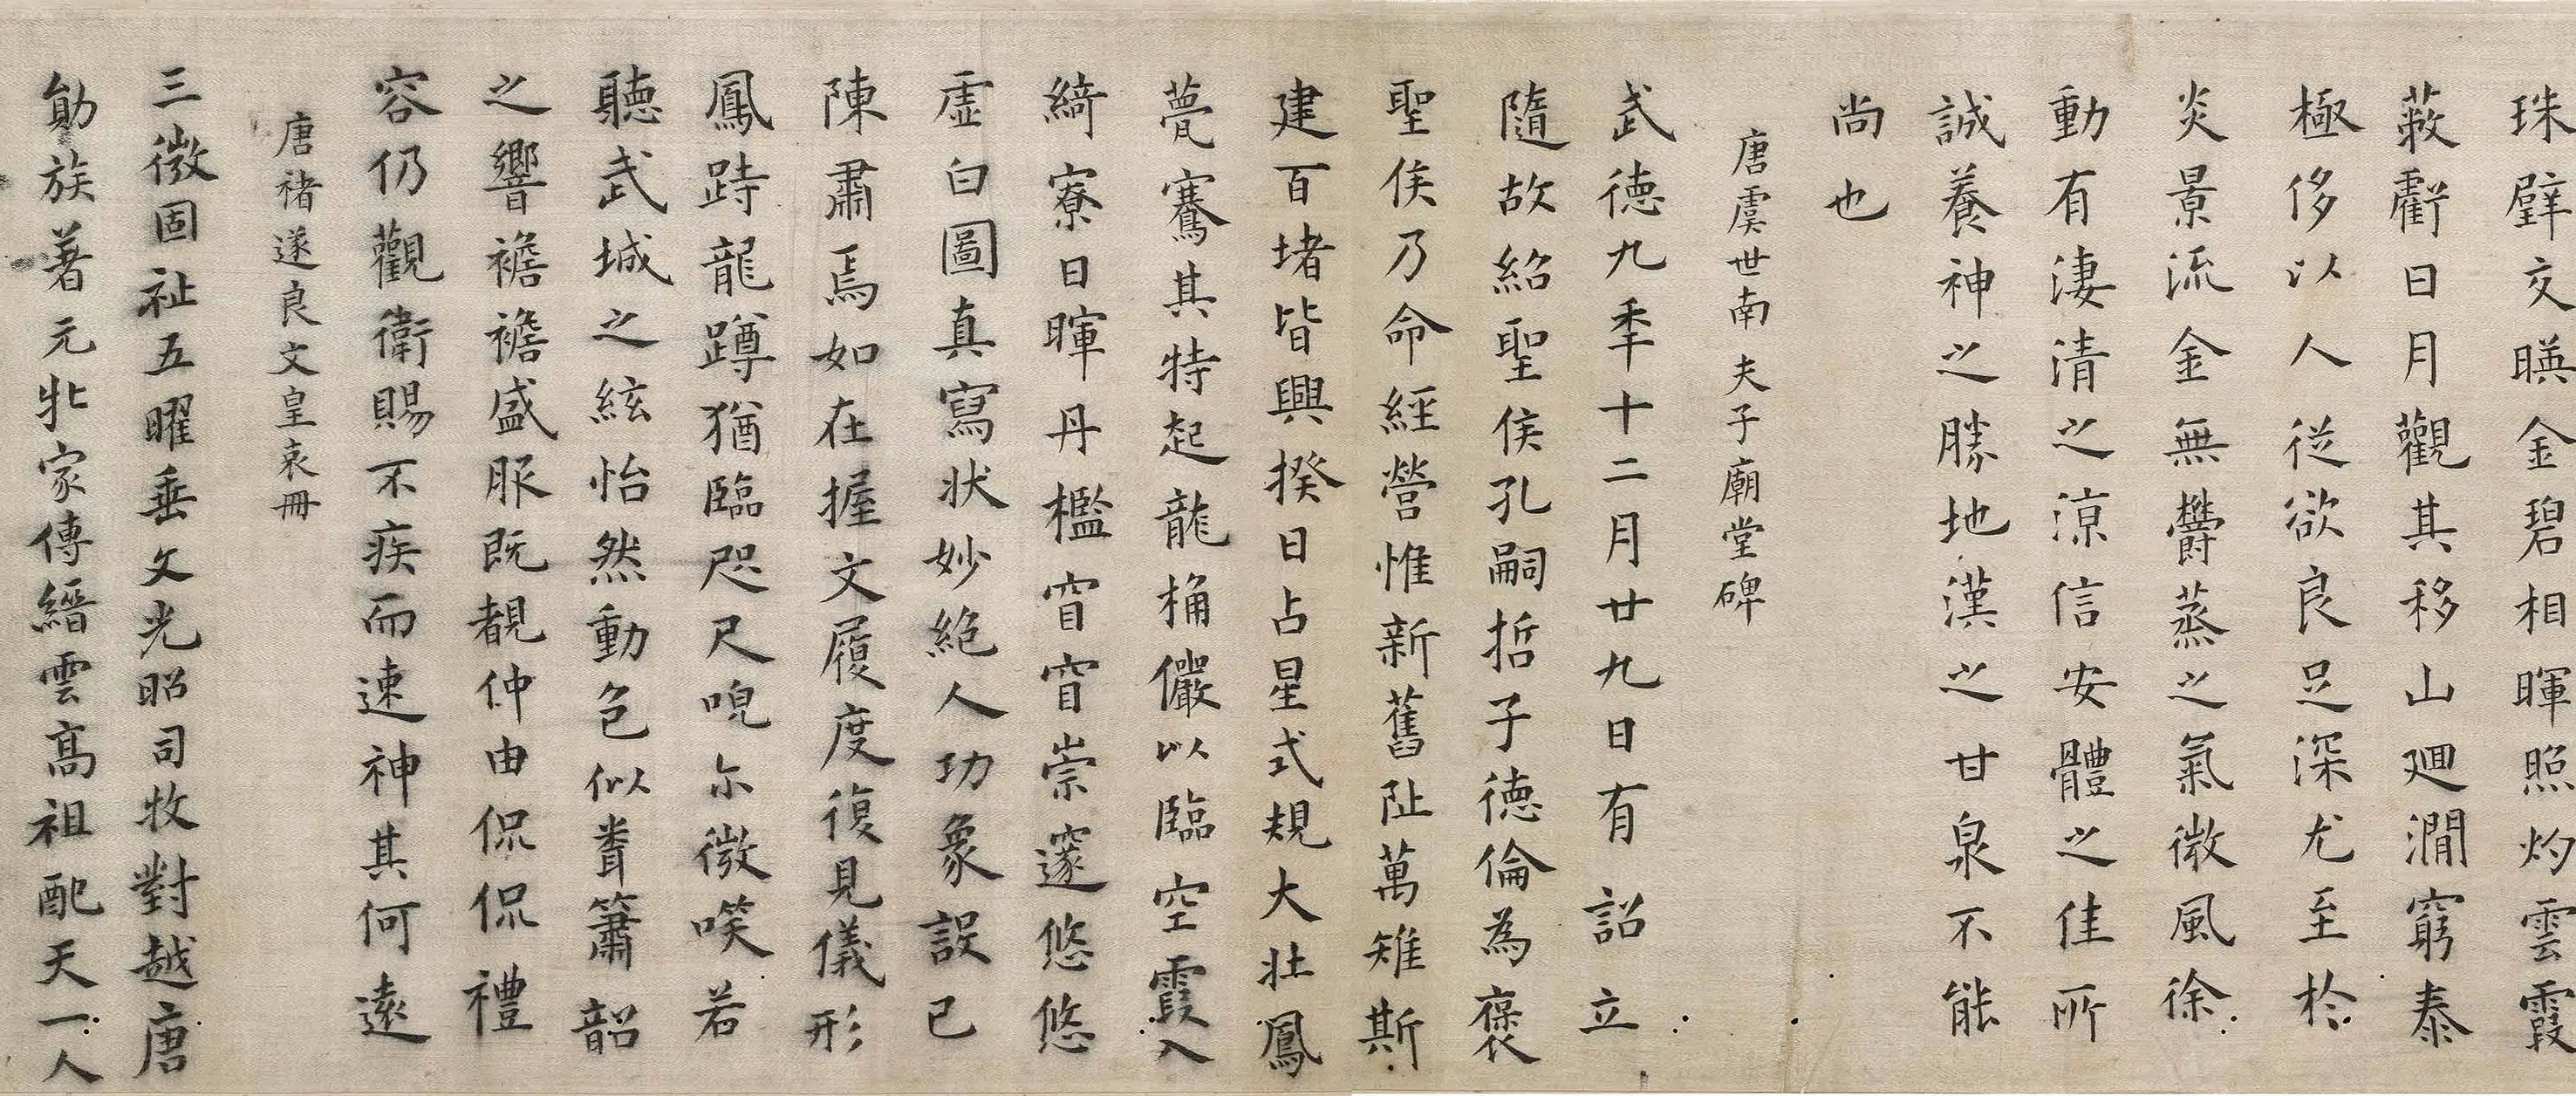 珠壁交暎金碧相暉照灼雲霞
蔽虧日月觀其移山廻澗窮泰
極侈以人從欲良足深尤至於
炎景流金無欝蒸之氣微風徐
動有淒清之涼信安體之佳所
誠養神之勝地漢之甘泉不能
尚也
唐虞世南夫子廟堂碑
武德九秊十二月廿九日有詔立
隨故紹聖侯孔嗣哲子德倫為褒
聖侯乃命經營惟新舊阯萬雉斯
建百堵皆興揆日占星式規大壯鳳
甍騫其特起龍桷儼以臨空霞入
綺寮日暉丹檻窅窅崇邃悠悠
虛白圖真寫狀妙絕人功象設已
陳肅焉如在握文履度復見儀形
鳳跱龍蹲猶臨咫尺唲尒微唉若
聽武城之絃怡然動色似聋簫韶
之響襜襜盛服既覩仲由侃侃禮
容仍觀衛賜不疾而速神其何遠
唐褚遂良文皇哀冊
三微固祉五曜垂文光昭司牧對越唐
勛族著元牝家傳縉雲高祖配天一人